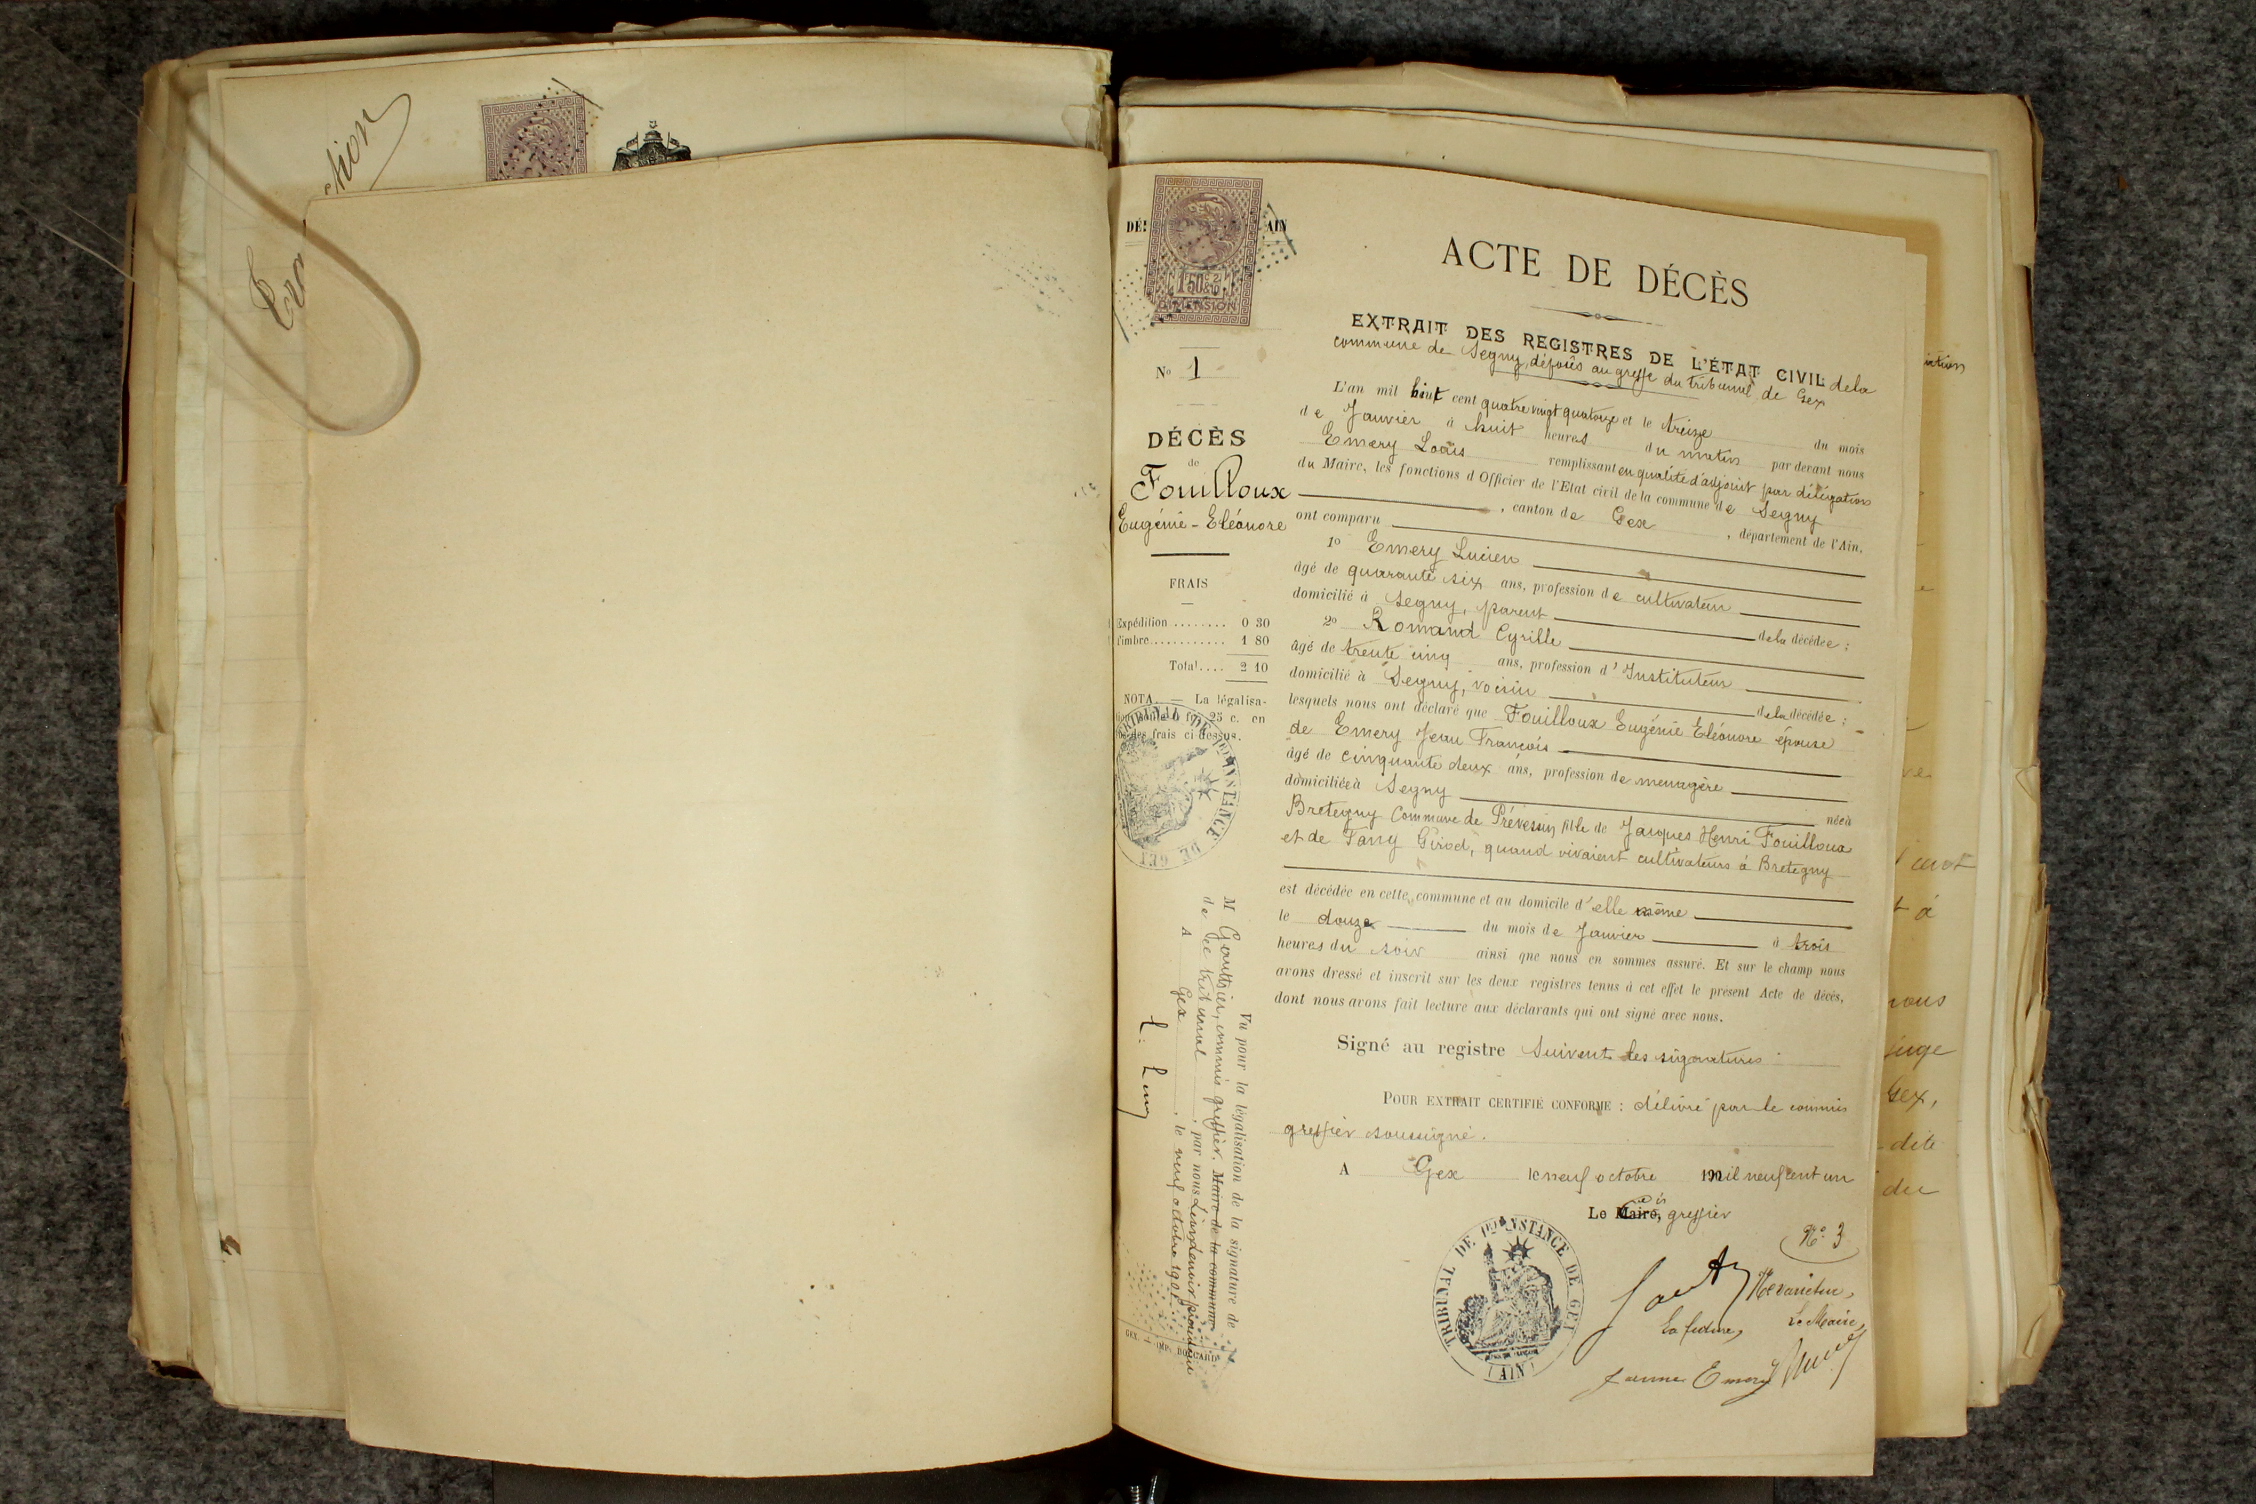 DÉ
AIN
1 50
DIMENSION
No 1
DÉCÈS
de
Fouilloux
Eugénie - Eléonore
FRAIS
Expédition ........ 0 30
Timbre ............ 1 80
Total .... 2 10
NOTA. — La légalisa-
25 c. en
des frais ci-dessus.
TRIBUNAL DE 1re INSTANCE DE GEX
Vu pour la légalisation de la signature de
M Gauthier, commis greffier, Maire de la commune
de ce tribunal, par nous président
A Gex, le neuf octobre 1901
GEX. — IMP.
ACTE DE DÉCÈS
EXTRAIT DES REGISTRES DE L'ÉTAT CIVIL de la
commune de Segny, déposés au greffe du tribunal de Gex
L'an mil huit cent quatre vingt quatorze et le treize du mois
de Janvier à huit heures du matin par devant nous
Emery Louis remplissant en qualité d'adjoint par délégation
du Maire, les fonctions d'Officier de l'Etat civil de la commune de Segny
, canton de Gex, département de l'Ain,
ont comparu
1o Emery Lucien
âgé de quarante six ans, profession de cultivateur
domicilié à Segny, parent de la décédée ;
2o Romand Cyrille
âgé de trente cinq ans, profession d'Instituteur
domicilié à Segny, voisin de la décédée ;
lesquels nous ont déclaré que Fouilloux Eugénie Eléonore épouse
de Emery Jean François
âgé de cinquante deux ans, profession de menagère
domiciliée à Segny née à
Bretegny Commune de Prévessin fille de Jacques Henri Fouilloux
et de Fany Girod, quand vivaient cultivateurs à Bretegny
est décédée en cette commune et au domicile d'elle même
le douze du mois de Janvier à trois
heures du soir ainsi que nous en sommes assuré. Et sur le champ nous
avons dressé et inscrit sur les deux registres tenus à cet effet le présent Acte de décès,
dont nous avons fait lecture aux déclarants qui ont signé avec nous.
Signé au registre Suivent les signatures
POUR EXTRAIT CERTIFIÉ CONFORME : délivré par le commis
greffier soussigné.
A Gex le neuf octobre 190 mil neuf cent un
Le Maire, greffier
No 3
TRIBUNAL DE 1re INSTANCE DE GEX
(AIN)
La future,
Le Maire,
Jeanne Emery
nous
juge
Gex,
dite
du